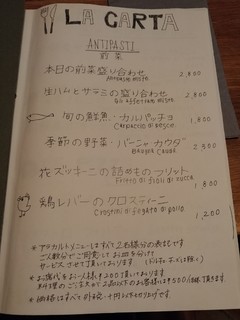 LA CARTA
ANTIPASTI
前菜
本日の前菜盛り合わせ 2,800
Antipasto misto
生ハムとサラミの盛り合わせ 2,800
Gli affettati misti
旬の鮮魚・カルパッチョ 1,800
Carpaccio di pesce
季節の野菜・バーニャカウダ 2,300
Bagna Cauda
花ズッキーニの詰めものフリット 1,800
Fritto di fiori di zucca
鶏レバーのクロスティーニ 1,200
Crostini di fegato di pollo
*アラカルトメニューはすべて2名様分の表記です
ご人数分でご用意してお皿を分けて
サービスさせて頂いております
*お席代をお一人様¥200頂いております